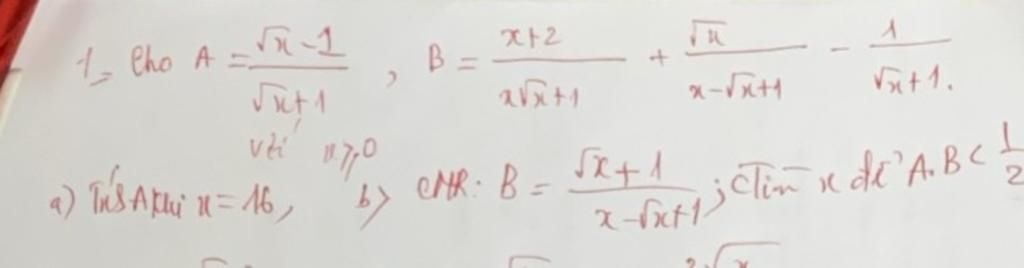 1, Cho A = \frac{\sqrt{x}-1}{\sqrt{x}+1}, B = \frac{x+2}{x\sqrt{x}+1} + \frac{\sqrt{x}}{x-\sqrt{x}+1} - \frac{1}{\sqrt{x}+1}.
với x ≥ 0
a) Tính A khi x = 16, b) CMR: B = \frac{\sqrt{x}+1}{x-\sqrt{x}+1}; c) Tìm x để A.B < \frac{1}{2}